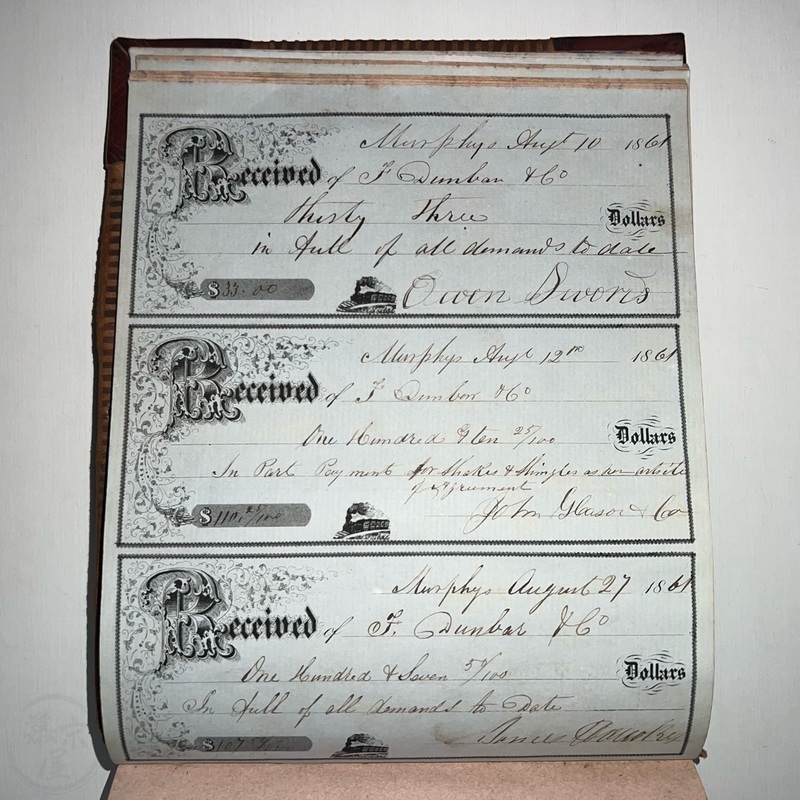 Murphys Augt 10 1861
Received of F Dunbar & Co
Thirty Three Dollars
in full of all demands to date
$33.00 Owen Swords
Murphys Augt 12th 1861
Received of F Dunbar & Co
One Hundred & ten 25/100 Dollars
In Part Payment for Shakes & Shingles as per article
of Agreement
$110.25/100 John Gleason & Co
Murphys August 27 1861
Received of F. Dunbar & Co
One Hundred & Seven /100 Dollars
In full of all demands to Date
$107 James